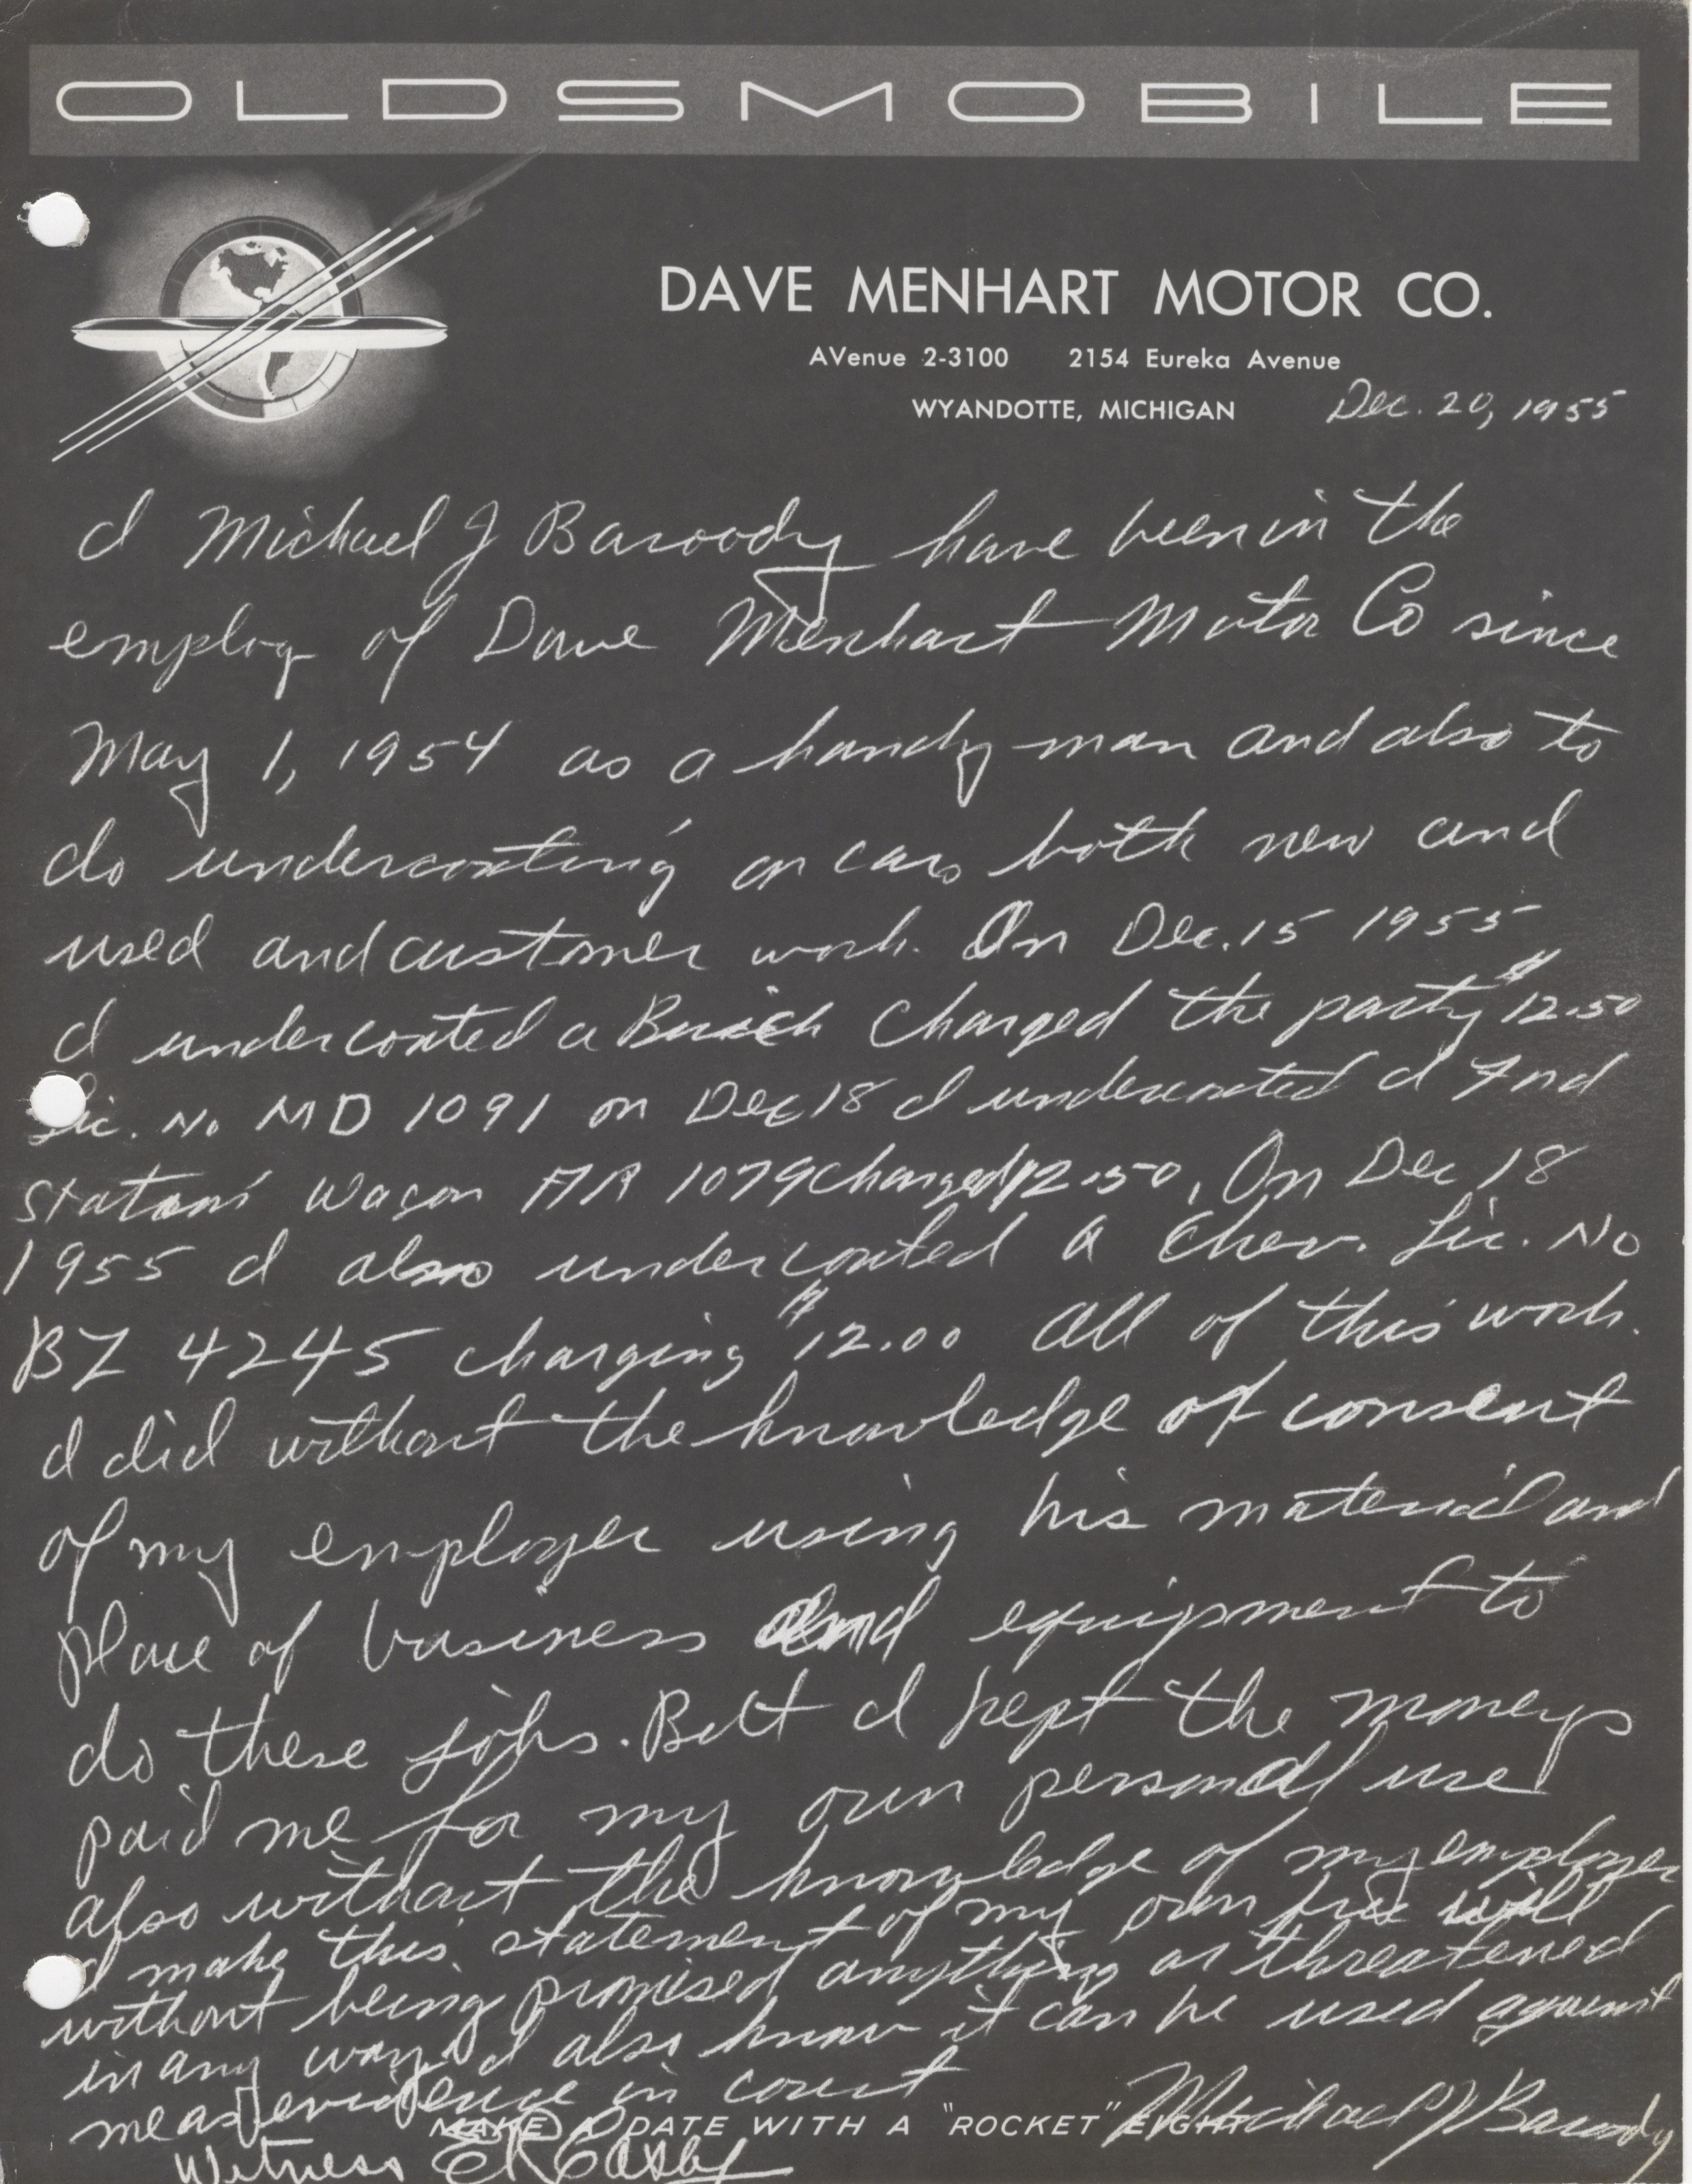 OLDSMOBILE
DAVE MENHART MOTOR CO.
AVenue 2-3100 2154 Eureka Avenue
WYANDOTTE, MICHIGAN Dec. 20, 1955
I Michael J Baroody have been in the
employ of Dave Menhart Motor Co since
May 1, 1954 as a handy man and also to
do undercoating on cars both new and
used and customer work. On Dec. 15 1955
I undercoated a Buick Charged the party $12.50
Lic. No MD 1091 on Dec 18 I undercoated a Ford
Station Wagon AA 1079 charged 12.50, On Dec 18
1955 I also undercoated a Chev. Lic. No
BZ 4245 charging $12.00 All of this work.
I did without the knowledge of consent
of my employer using his material and
place of business and equipment to
do these jobs. But I kept the moneys
paid me for my own personal use
also without the knowledge of my employer
I make this statement of my own free will
without being promised anything or threatened
in any way. I also know it can be used against
me as evidence in court Michael J Baroody
MAKE A DATE WITH A "ROCKET" EIGHT
Witness